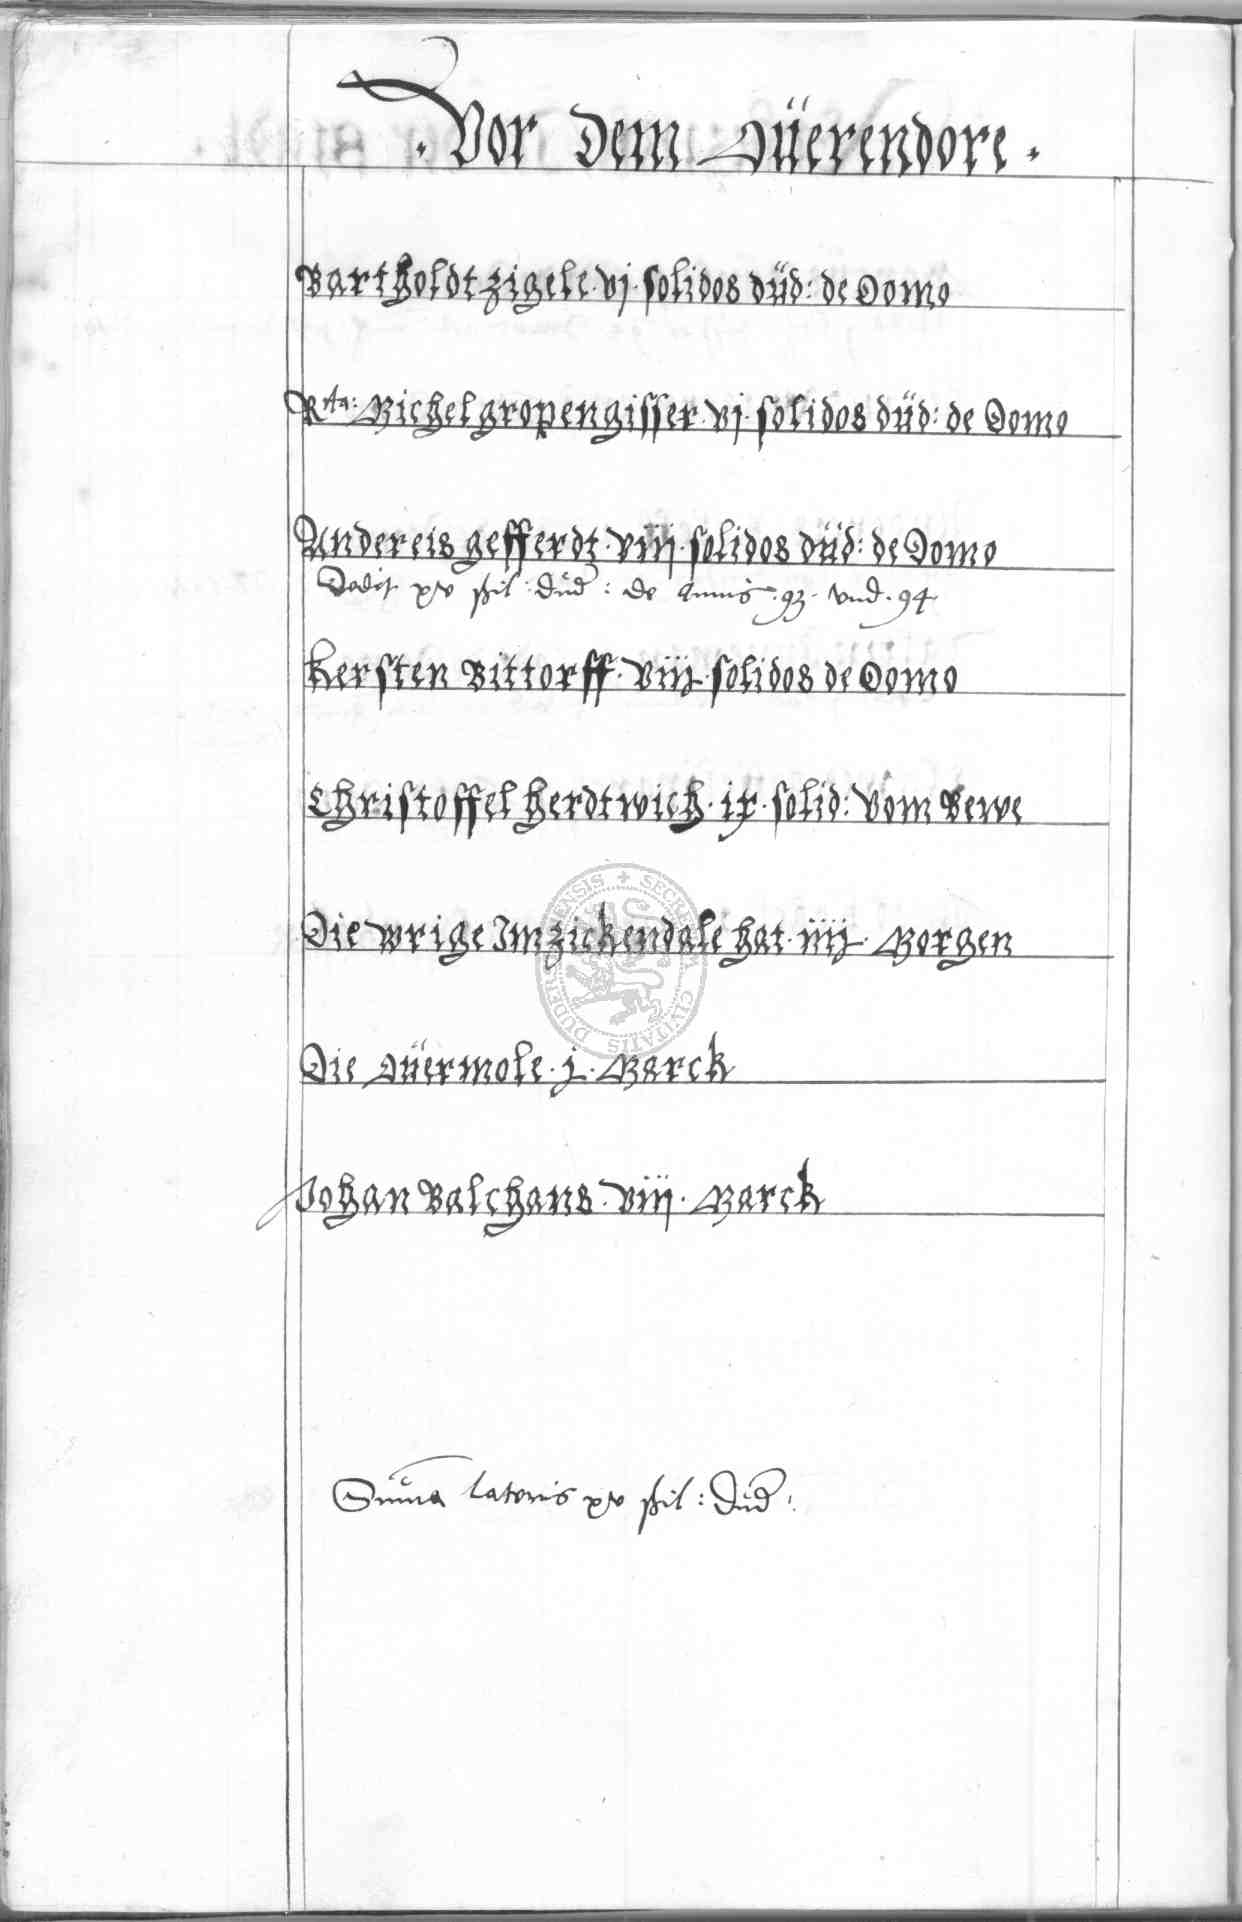 . Vor dem Düerendore .
Bartholdt zigele . vj . solidos düd : de Domo
Rta: Michel gropengisser . vj . solidos düd : de Domo
Andereis gefferdt . viij . solidos düd : de Domo
Dedit xv ßil : dud : de annis . 93 . vnd . 94
Kersten Bittorff . viij . solidos de Domo
Christoffel Herdtwich . ix . solid : vom Bewe
Die wrige Im zickendale hat . iiij . Morgen
Die Düermole . j . Marck
Johan Balchans . viij . Marck
Summa lateris xv ßil : dud :
SECRETUM CIVITATIS DUDERSTADENSIS